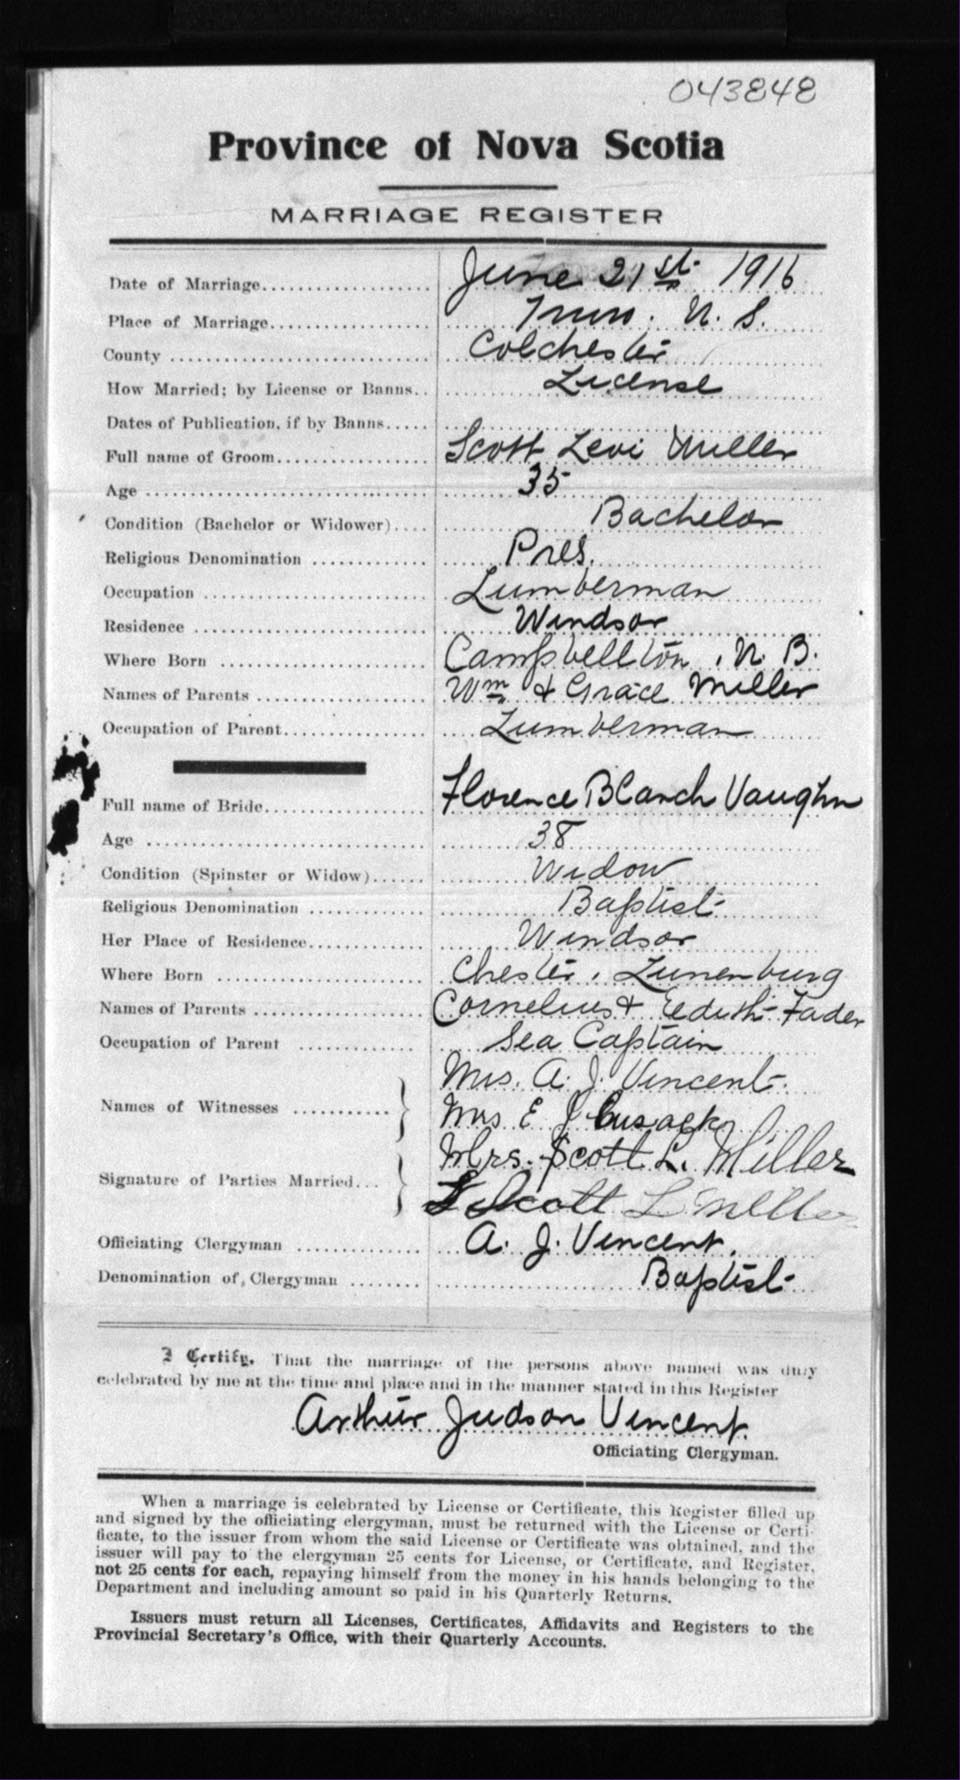 043848
Province of Nova Scotia
MARRIAGE REGISTER
Date of Marriage.................... June 21st 1916
Place of Marriage................... Truro. N. S.
County .................... Colchester
How Married; by License or Banns.. License
Dates of Publication, if by Banns.....
Full name of Groom.................. Scott Levi Miller
Age .................... 35
Condition (Bachelor or Widower).... Bachelor
Religious Denomination ............. Pres.
Occupation .................... Lumberman
Residence .................... Windsor
Where Born .................... Campbellton, N. B.
Names of Parents .................. Wm & Grace Miller
Occupation of Parent................ Lumberman
Full name of Bride.................. Florence Blanch Vaughn
Age .................... 38
Condition (Spinster or Widow)...... Widow
Religious Denomination ............. Baptist
Her Place of Residence............. Windsor
Where Born .................... Chester, Lunenburg
Names of Parents .................. Cornelius & Eedith Fader
Occupation of Parent ............. Sea Captain
Mrs. A. J. Vincent.
Names of Witnesses ...........
Mrs E J Cusack
Mrs. Scott L. Miller
Signature of Parties Married...
Scott L Miller
Officiating Clergyman ............. A. J. Vincent.
Denomination of Clergyman ........ Baptist
I Certify, That the marriage of the persons above named was duly
celebrated by me at the time and place and in the manner stated in this Register
Arthur Judson Vincent.
Officiating Clergyman.
When a marriage is celebrated by License or Certificate, this Register filled up
and signed by the officiating clergyman, must be returned with the License or Certi-
ficate, to the issuer from whom the said License or Certificate was obtained, and the
issuer will pay to the clergyman 25 cents for License, or Certificate, and Register,
not 25 cents for each, repaying himself from the money in his hands belonging to the
Department and including amount so paid in his Quarterly Returns.
Issuers must return all Licenses, Certificates, Affidavits and Registers to the
Provincial Secretary's Office, with their Quarterly Accounts.